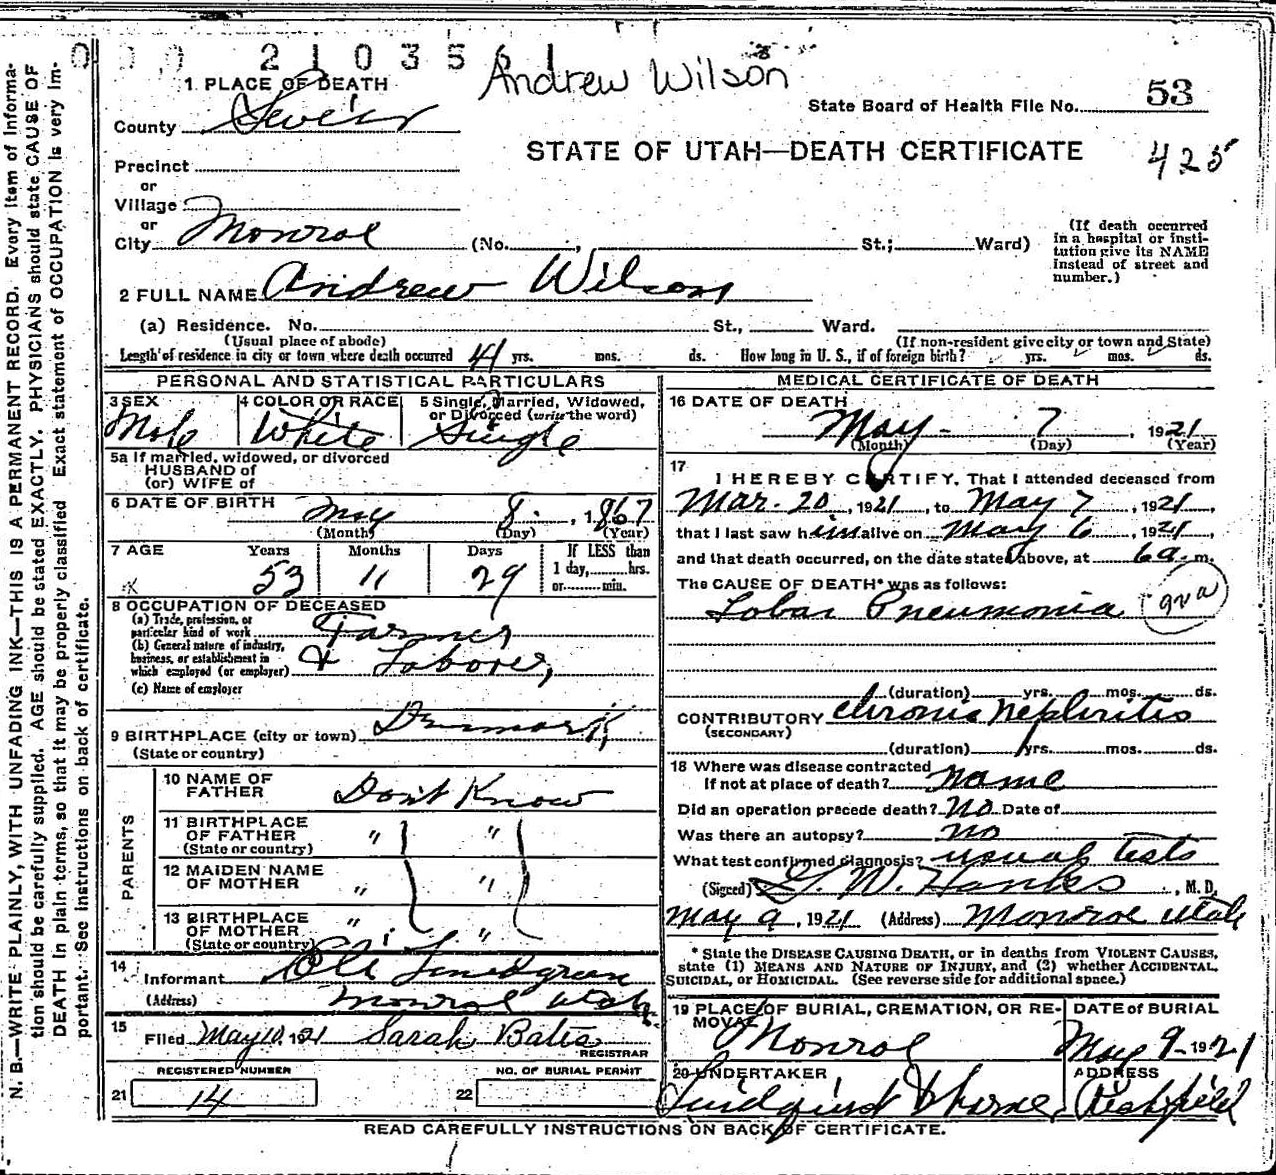 0 0 0 2 1 0 3 5 6 1
Andrew Wilson
1 PLACE OF DEATH
State Board of Health File No. 53
County Sevier
STATE OF UTAH—DEATH CERTIFICATE
425
Precinct
or
Village
or
City Monroe (No. , St.; Ward)
(If death occurred in a hospital or institution give its NAME instead of street and number.)
2 FULL NAME Andrew Wilson
(a) Residence. No. St., Ward.
(Usual place of abode) (If non-resident give city or town and State)
Length of residence in city or town where death occurred 41 yrs. mos. ds. How long in U. S., if of foreign birth? yrs. mos. ds.
PERSONAL AND STATISTICAL PARTICULARS
3 SEX 4 COLOR OR RACE 5 Single, Married, Widowed, or Divorced (write the word)
Male White Single
5a If married, widowed, or divorced
HUSBAND of
(or) WIFE of
6 DATE OF BIRTH May 8. , 1867
(Month) (Day) (Year)
7 AGE Years Months Days If LESS than
1 day, hrs.
or min.
53 11 29
8 OCCUPATION OF DECEASED
(a) Trade, profession, or
particular kind of work Farmer
(b) General nature of industry,
business, or establishment in
which employed (or employer) & Laborer,
(c) Name of employer
9 BIRTHPLACE (city or town) Denmark,
(State or country)
PARENTS
10 NAME OF FATHER Don't Know
11 BIRTHPLACE OF FATHER " "
(State or country)
12 MAIDEN NAME OF MOTHER " "
13 BIRTHPLACE OF MOTHER " "
(State or country)
14 Informant Ole
(Address) Monroe Utah.
15 Filed May 10, 1921 Sarah Bates
REGISTRAR
REGISTERED NUMBER NO. OF BURIAL PERMIT
21 14 22
MEDICAL CERTIFICATE OF DEATH
16 DATE OF DEATH
May - 7 , 1921
(Month) (Day) (Year)
17
I HEREBY CERTIFY, That I attended deceased from
Mar. 20, 1921, to May 7, 1921,
that I last saw him alive on May 6, 1921,
and that death occurred, on the date stated above, at 6 a. m.
The CAUSE OF DEATH* was as follows:
Lobar Pneumonia
(duration) yrs. mos. ds.
CONTRIBUTORY Chronic Nephritis
(SECONDARY)
(duration) 1 yrs. mos. ds.
18 Where was disease contracted
If not at place of death? name
Did an operation precede death? No Date of
Was there an autopsy? no
What test confirmed diagnosis? usual tests
(Signed) G. W. Hanks , M. D.
May 9, 1921 (Address) Monroe Utah
* State the DISEASE CAUSING DEATH, or in deaths from VIOLENT CAUSES,
state (1) MEANS AND NATURE OF INJURY, and (2) whether ACCIDENTAL,
SUICIDAL, or HOMICIDAL. (See reverse side for additional space.)
19 PLACE OF BURIAL, CREMATION, OR REMOVAL DATE OF BURIAL
Monroe May 9-1921
20 UNDERTAKER ADDRESS
Lindquist Richfield
READ CAREFULLY INSTRUCTIONS ON BACK OF CERTIFICATE.
N. B.—WRITE PLAINLY, WITH UNFADING INK—THIS IS A PERMANENT RECORD. Every item of Information should be carefully supplied. AGE should be stated EXACTLY. PHYSICIANS should state CAUSE OF DEATH in plain terms, so that it may be properly classified Exact statement of OCCUPATION is very important. See instructions on back of certificate.